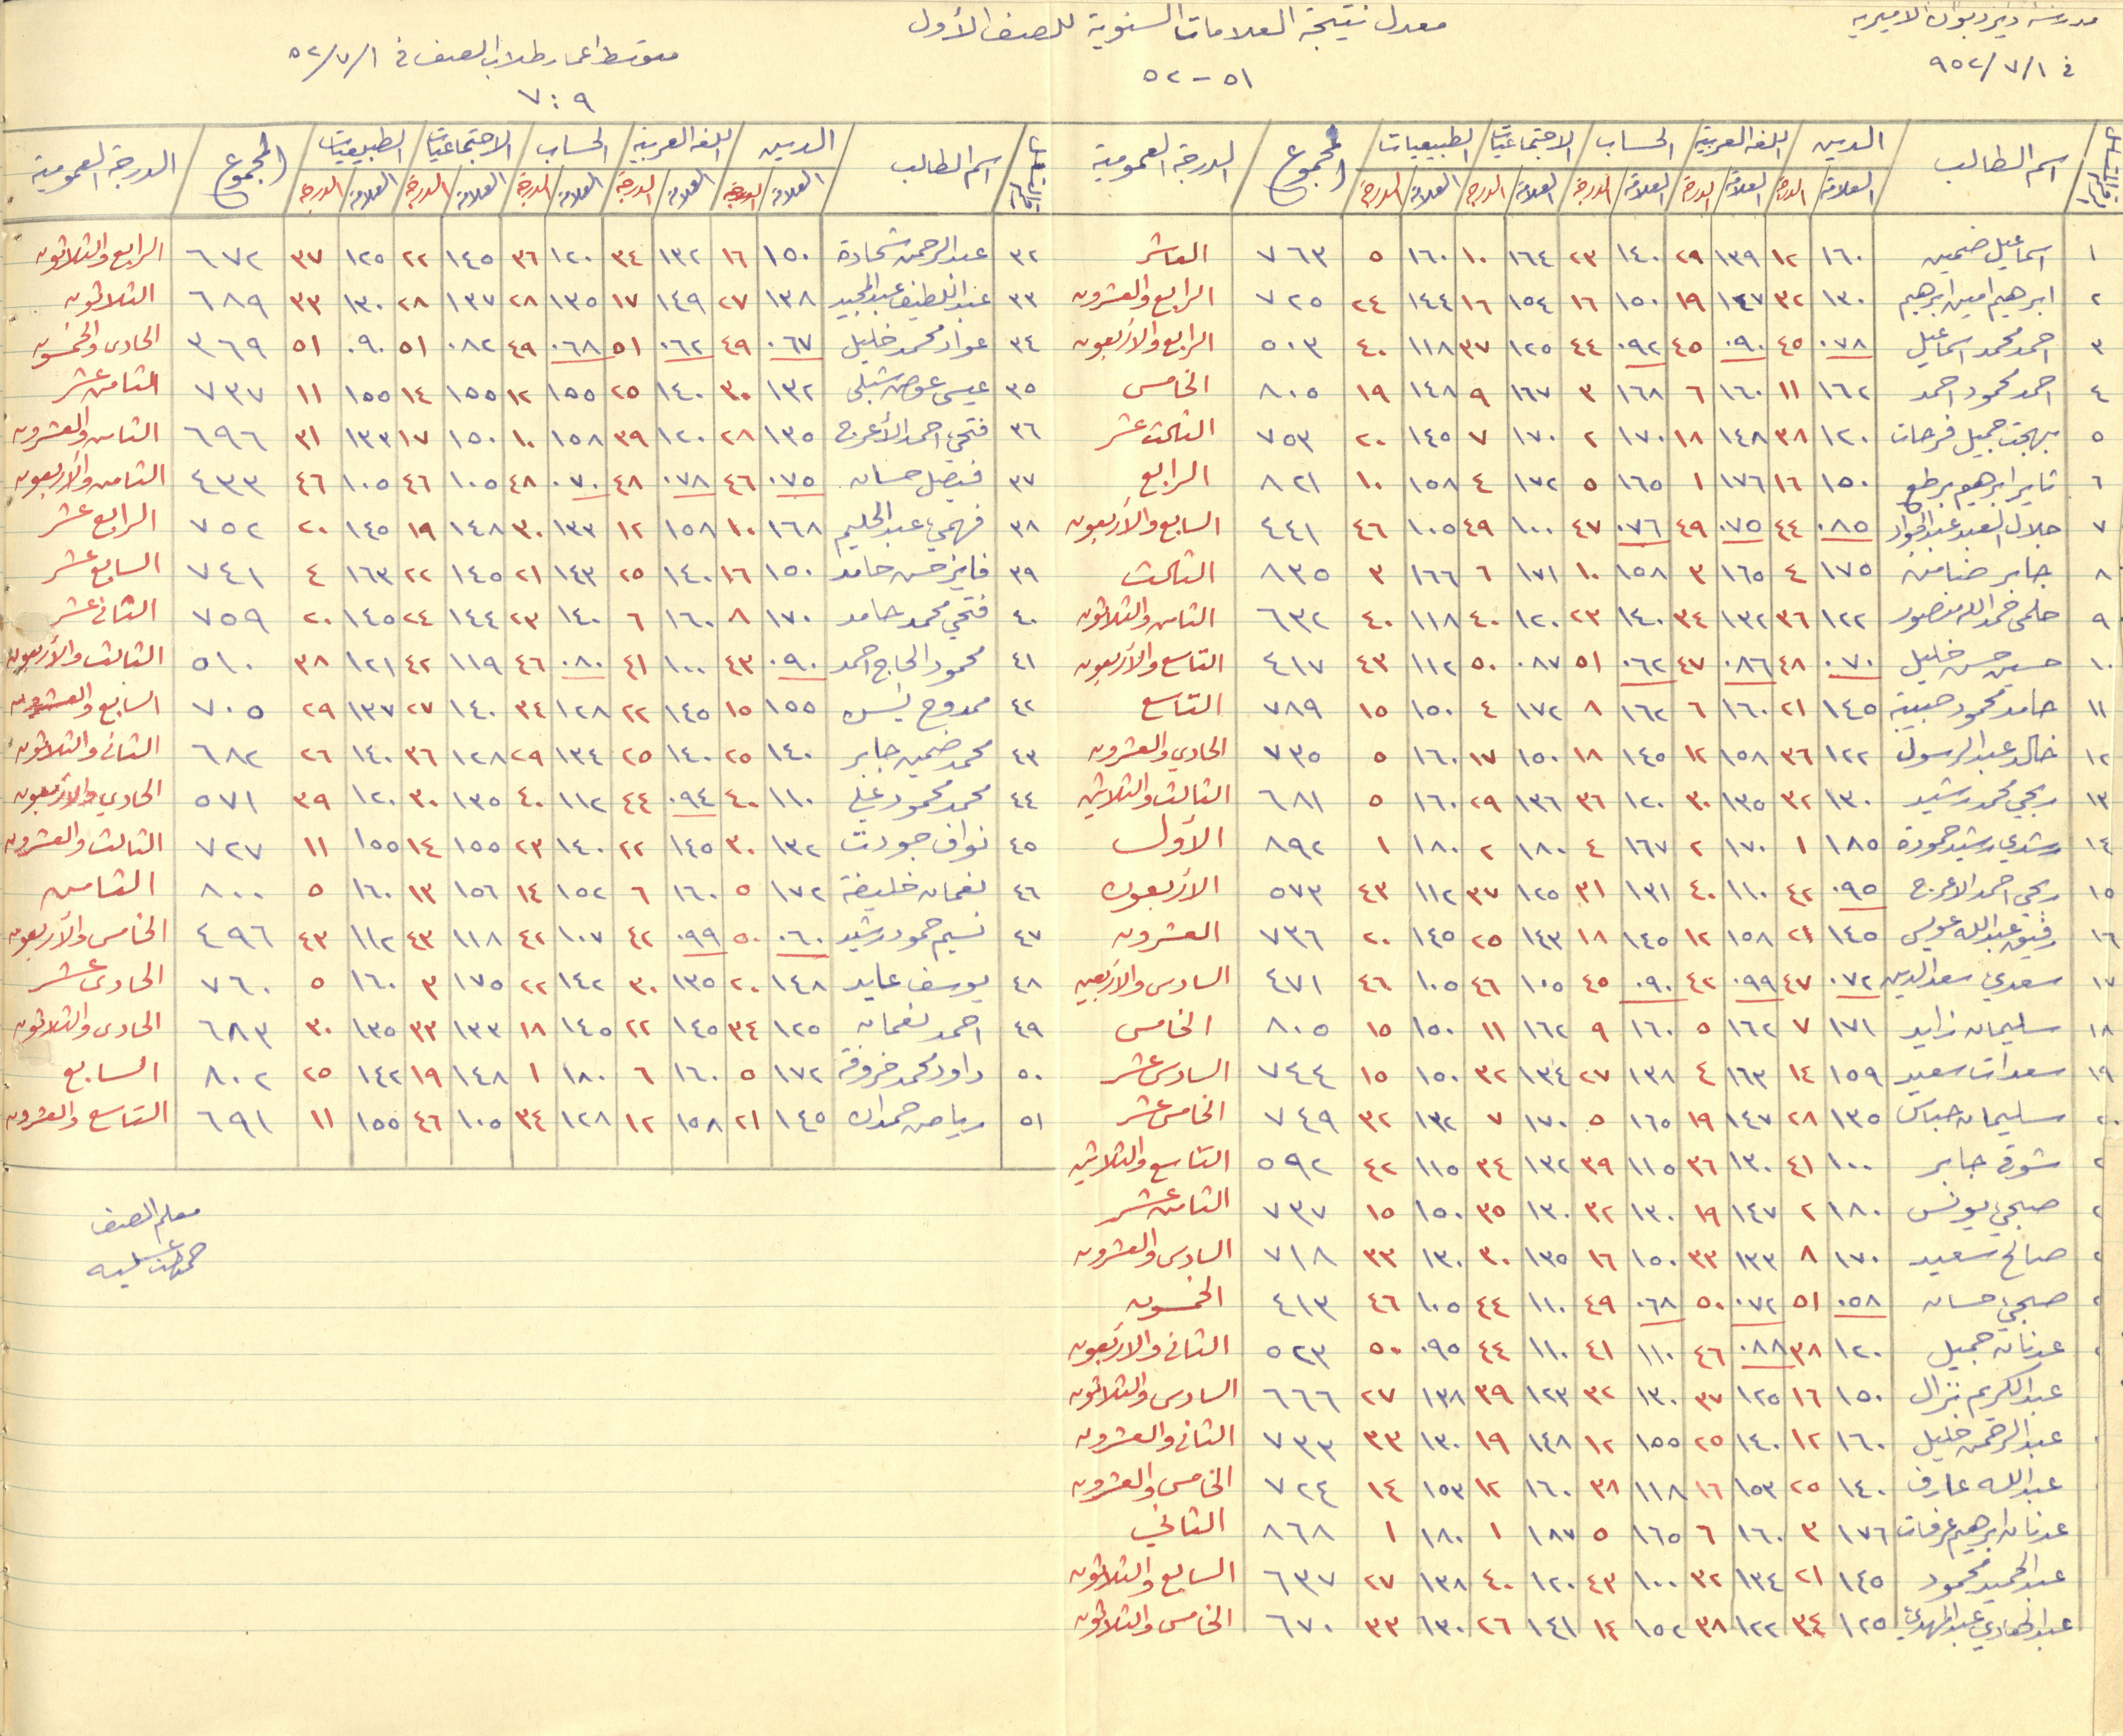 مدرسة ديرديوان الاميرية
في ٩٥٢/٧/١
معدل نتيجة العلامات السنوية للصف الأول
٥١ - ٥٢
متوسط اعمار طلاب الصف في ٥٢/٧/١
٧:٩
اسم الطالب الدين اللغة العربية الحساب الاجتماعيات الطبيعيات المجموع الدرجة العمومية
العلامة الدرجة العلامة الدرجة العلامة الدرجة العلامة الدرجة العلامة الدرجة
١ اسماعيل ضمين ١٦٠ ١٢ ١٣٩ ٢٩ ١٤٠ ٢٣ ١٦٤ ١٠ ١٦٠ ٥ ٧٦٣ العاشر
٢ ابرهيم امين ابرهيم ١٣٠ ٣٢ ١٤٧ ١٩ ١٥٠ ١٦ ١٥٤ ١٦ ١٤٤ ٢٤ ٧٢٥ الرابع والعشرون
٣ احمد محمد اسماعيل ٠٧٨ ٤٥ ٠٩٠ ٤٥ ٠٩٢ ٤٤ ١٢٥ ٣٧ ١١٨ ٤٠ ٥٠٣ الرابع والأربعون
٤ احمد محمود احمد ١٦٢ ١١ ١٦٠ ٦ ١٦٨ ٣ ١٦٧ ٩ ١٤٨ ١٩ ٨٠٥ الخامس
٥ بهجت جميل فرحات ١٢٠ ٣٨ ١٤٨ ١٨ ١٧٠ ٢ ١٧٠ ٧ ١٤٥ ٢٠ ٧٥٣ الثالث عشر
٦ ثاير ابرهيم برطع ١٥٠ ١٦ ١٧٦ ١ ١٦٥ ٥ ١٧٢ ٤ ١٥٨ ١٠ ٨٢١ الرابع
٧ جلال العبد عبد الجواد ٠٨٥ ٤٤ ٠٧٥ ٤٩ ٠٧٦ ٤٧ ١٠٠ ٤٩ ١٠٥ ٤٦ ٤٤١ السابع والأربعون
٨ جابر ضامن ١٧٥ ٤ ١٦٥ ٣ ١٥٨ ١٠ ١٧١ ٦ ١٦٦ ٣ ٨٣٥ الثالث
٩ حلمي ضمدالله منصور ١٢٢ ٣٦ ١٣٢ ٣٤ ١٤٠ ٢٣ ١٢٠ ٤٠ ١١٨ ٤٠ ٦٣٢ الثامن والثلاثون
١٠ حسين حسن خليل ٠٧٠ ٤٨ ٠٨٦ ٤٧ ٠٦٢ ٥١ ٠٨٧ ٥٠ ١١٢ ٤٣ ٤١٧ التاسع والأربعون
١١ حامد محمود حبيبة ١٤٥ ٢١ ١٦٠ ٦ ١٦٢ ٨ ١٧٢ ٤ ١٥٠ ١٥ ٧٨٩ التاسع
١٢ خالد عبد الرسول ١٢٢ ٣٦ ١٥٨ ١٢ ١٤٥ ١٨ ١٥٠ ١٧ ١٦٠ ٥ ٧٣٥ الحادي والعشرون
١٣ ربحي محمد رشيد ١٣٠ ٣٢ ١٣٥ ٣٠ ١٢٠ ٣٦ ١٣٦ ٢٩ ١٦٠ ٥ ٦٨١ الثالث والثلاثين
١٤ رشدي رشيد حمودة ١٨٥ ١ ١٧٠ ٢ ١٦٧ ٤ ١٨٠ ٢ ١٨٠ ١ ٨٩٢ الأول
١٥ ربحي احمد الاعرج ٠٩٥ ٤٢ ١١٠ ٤٠ ١٣١ ٣١ ١٢٥ ٣٧ ١١٢ ٤٣ ٥٧٣ الأربعون
١٦ رفيق عبدالله عويس ١٤٥ ٢١ ١٥٨ ١٢ ١٤٥ ١٨ ١٤٣ ٢٥ ١٤٥ ٢٠ ٧٣٦ العشرون
١٧ سعدي سعد الدين ٠٧٢ ٤٧ ٠٩٩ ٤٢ ٠٩٠ ٤٥ ١٠٥ ٤٦ ١٠٥ ٤٦ ٤٧١ السادس والأربعين
١٨ سليمان زايد ١٧١ ٧ ١٦٢ ٥ ١٦٠ ٩ ١٦٢ ١١ ١٥٠ ١٥ ٨٠٥ الخامس
١٩ سعدات سعيد ١٥٩ ١٤ ١٦٣ ٤ ١٣٨ ٢٧ ١٣٤ ٣٢ ١٥٠ ١٥ ٧٤٤ السادس عشر
٢٠ سليمان حباس ١٣٥ ٢٨ ١٤٧ ١٩ ١٦٥ ٥ ١٧٠ ٧ ١٣٢ ٣٢ ٧٤٩ الخامس عشر
٢ شوقي جابر ١٠٠ ٤١ ١٣٠ ٣٦ ١١٥ ٣٩ ١٣٢ ٣٤ ١١٥ ٤٢ ٥٩٢ التاسع والثلاثين
٢ صبحي يونس ١٨٠ ٢ ١٤٧ ١٩ ١٣٠ ٣٢ ١٣٠ ٣٥ ١٥٠ ١٥ ٧٣٧ الثامن عشر
٢ صالح سعيد ١٧٠ ٨ ١٣٣ ٣٣ ١٥٠ ١٦ ١٣٥ ٣٠ ١٣٠ ٣٣ ٧١٨ السادس والعشرون
٢ صبحي حسان ٠٥٨ ٥١ ٠٧٢ ٥٠ ٠٦٨ ٤٩ ١١٠ ٤٤ ١٠٥ ٤٦ ٤١٣ الخمسون
عدنان جميل ١٢٠ ٣٨ ٠٨٨ ٤٦ ١١٠ ٤١ ١١٠ ٤٤ ٠٩٥ ٥٠ ٥٢٣ الثاني والأربعون
عبد الكريم نزال ١٥٠ ١٦ ١٢٥ ٣٧ ١٣٠ ٣٢ ١٢٣ ٣٩ ١٣٨ ٢٧ ٦٦٦ السادس والثلاثون
عبد الرحمن خليل ١٦٠ ١٢ ١٤٠ ٢٥ ١٥٥ ١٢ ١٤٨ ١٩ ١٣٠ ٣٣ ٧٣٣ الثاني والعشرون
عبدالله عارف ١٤٠ ٢٥ ١٥٣ ١٦ ١١٨ ٣٨ ١٦٠ ١٢ ١٥٣ ١٤ ٧٢٤ الخامس والعشرون
عدنان ابرهيم عرفات ١٧٦ ٣ ١٦٠ ٦ ١٦٥ ٥ ١٨٧ ١ ١٨٠ ١ ٨٦٨ الثاني
عبد الحميد محمود ١٤٥ ٢١ ١٣٤ ٣٢ ١٠٠ ٤٣ ١٢٠ ٤٠ ١٣٨ ٢٧ ٦٣٧ السابع والثلاثون
عبد الهادي عبد المهدي ١٢٥ ٣٤ ١٢٢ ٣٨ ١٥٢ ١٤ ١٤١ ٢٦ ١٣٠ ٣٣ ٦٧٠ الخامس والثلاثون
اسم الطالب الدين اللغة العربية الحساب الاجتماعيات الطبيعيات المجموع الدرجة العمومية
العلامة الدرجة العلامة الدرجة العلامة الدرجة العلامة الدرجة العلامة الدرجة
٣٢ عبد الرحمن شحادة ١٥٠ ١٦ ١٣٢ ٣٤ ١٢٠ ٣٦ ١٤٥ ٢٢ ١٢٥ ٣٧ ٦٧٢ الرابع والثلاثون
٣٣ عبد اللطيف عبد المجيد ١٣٨ ٢٧ ١٤٩ ١٧ ١٣٥ ٢٨ ١٣٧ ٢٨ ١٣٠ ٣٣ ٦٨٩ الثلاثون
٣٤ عواد محمد خليل ٠٦٧ ٤٩ ٠٦٢ ٥١ ٠٦٨ ٤٩ ٠٨٢ ٥١ ٠٩٠ ٥١ ٣٦٩ الحادي والخمسون
٣٥ عيسى عوض شبلي ١٣٢ ٣٠ ١٤٠ ٢٥ ١٥٥ ١٢ ١٥٥ ١٤ ١٥٥ ١١ ٧٣٧ الثامن عشر
٣٦ فتحي احمد الأعرج ١٣٥ ٢٨ ١٢٠ ٣٩ ١٥٨ ١٠ ١٥٠ ١٧ ١٣٣ ٣١ ٦٩٦ الثامن والعشرون
٣٧ فيصل حسان ٠٧٥ ٤٦ ٠٧٨ ٤٨ ٠٧٠ ٤٨ ١٠٥ ٤٦ ١٠٥ ٤٦ ٤٣٣ الثامن والأربعون
٣٨ فهمي عبد الحليم ١٦٨ ١٠ ١٥٨ ١٢ ١٣٣ ٣٠ ١٤٨ ١٩ ١٤٥ ٢٠ ٧٥٢ الرابع عشر
٣٩ فايز حسن حامد ١٥٠ ١٦ ١٤٠ ٢٥ ١٤٣ ٢١ ١٤٥ ٢٢ ١٦٣ ٤ ٧٤١ السابع عشر
٤٠ فتحي محمد حامد ١٧٠ ٨ ١٦٠ ٦ ١٤٠ ٢٣ ١٤٤ ٢٤ ١٤٥ ٢٠ ٧٥٩ الثاني عشر
٤١ محمود الحاج احمد ٠٩٠ ٤٣ ١٠٠ ٤١ ٠٨٠ ٤٦ ١١٩ ٤٢ ١٢١ ٣٨ ٥١٠ الثالث والأربعون
٤٢ ممدوح يسن ١٥٥ ١٥ ١٤٥ ٢٢ ١٢٨ ٣٤ ١٤٠ ٢٧ ١٣٧ ٢٩ ٧٠٥ السابع والعشرون
٤٣ محمد ضمين جابر ١٤٠ ٢٥ ١٤٠ ٢٥ ١٣٤ ٢٩ ١٢٨ ٣٦ ١٤٠ ٢٦ ٦٨٢ الثاني والثلاثون
٤٤ محمد محمود علي ١١٠ ٤٠ ٠٩٤ ٤٤ ١١٢ ٤٠ ١٣٥ ٣٠ ١٢٠ ٣٩ ٥٧١ الحادي والأربعون
٤٥ نواف جودت ١٣٢ ٣٠ ١٤٥ ٢٢ ١٤٠ ٢٣ ١٥٥ ١٤ ١٥٥ ١١ ٧٢٧ الثالث والعشرون
٤٦ نعمان خليفة ١٧٢ ٥ ١٦٠ ٦ ١٥٢ ١٤ ١٥٦ ١٣ ١٦٠ ٥ ٨٠٠ الثامن
٤٧ نسيم حمود رشيد ٠٦٠ ٥٠ ٠٩٩ ٤٢ ١٠٧ ٤٢ ١١٨ ٤٣ ١١٢ ٤٣ ٤٩٦ الخامس والأربعون
٤٨ يوسف عايد ١٤٨ ٢٠ ١٣٥ ٣٠ ١٤٢ ٢٢ ١٧٥ ٣ ١٦٠ ٥ ٧٦٠ الحادي عشر
٤٩ احمد نعمان ١٢٥ ٣٤ ١٤٥ ٢٢ ١٤٥ ١٨ ١٣٣ ٣٣ ١٣٥ ٣٠ ٦٨٣ الحادي والثلاثون
٥٠ داود محمد خروفة ١٧٢ ٥ ١٦٠ ٦ ١٨٠ ١ ١٤٨ ١٩ ١٤٢ ٢٥ ٨٠٢ السابع
٥١ رياض حمدان ١٤٥ ٢١ ١٥٨ ١٢ ١٢٨ ٣٤ ١٠٥ ٤٦ ١٥٥ ١١ ٦٩١ التاسع والعشرون
معلم الصف